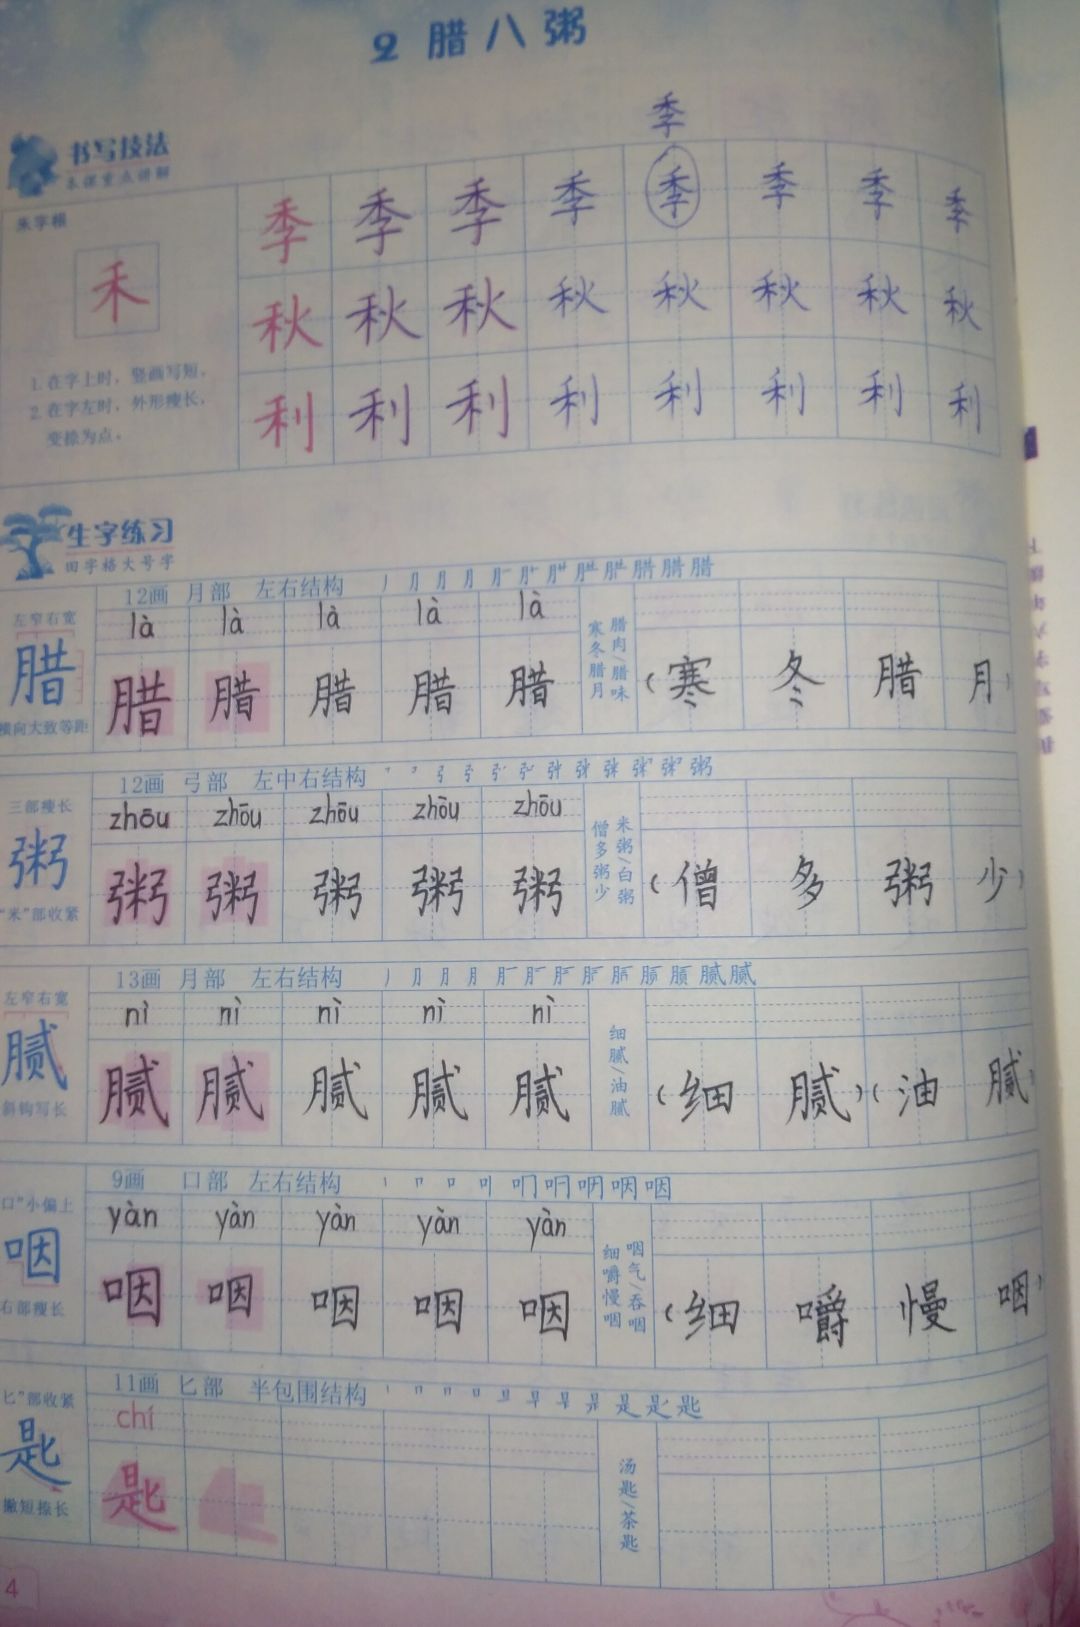 2 腊八粥
季
书写技法
本课重点讲解
禾字根
禾
1. 在字上时，竖画写短。
2. 在字左时，外形瘦长，
变捺为点。
季 季 季 季 季 季 季 季
秋 秋 秋 秋 秋 秋 秋 秋
利 利 利 利 利 利 利 利
生字练习
田字格大号字
12画 月部 左右结构
左窄右宽
腊
横向大致等距
là là là là là
腊 腊 腊 腊 腊
腊肉/腊味
寒冬腊月
(寒 冬 腊 月)
12画 弓部 左中右结构
三部瘦长
粥
"米"部收紧
zhōu zhōu zhōu zhōu zhōu
粥 粥 粥 粥 粥
米粥/白粥
僧多粥少
(僧 多 粥 少)
13画 月部 左右结构
左窄右宽
腻
斜钩写长
nì nì nì nì nì
腻 腻 腻 腻 腻
细腻/油腻
(细 腻)(油 腻
9画 口部 左右结构
口"小偏上
咽
右部瘦长
yàn yàn yàn yàn yàn
咽 咽 咽 咽 咽
咽气/吞咽
细嚼慢咽
(细 嚼 慢 咽)
11画 匕部 半包围结构
匕"部收紧
匙
撇短捺长
chí
匙
汤匙/茶匙
4